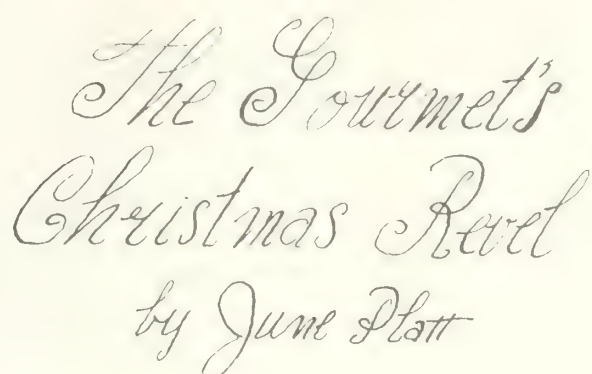 The Gourmet's
Christmas Revel
by June Platt